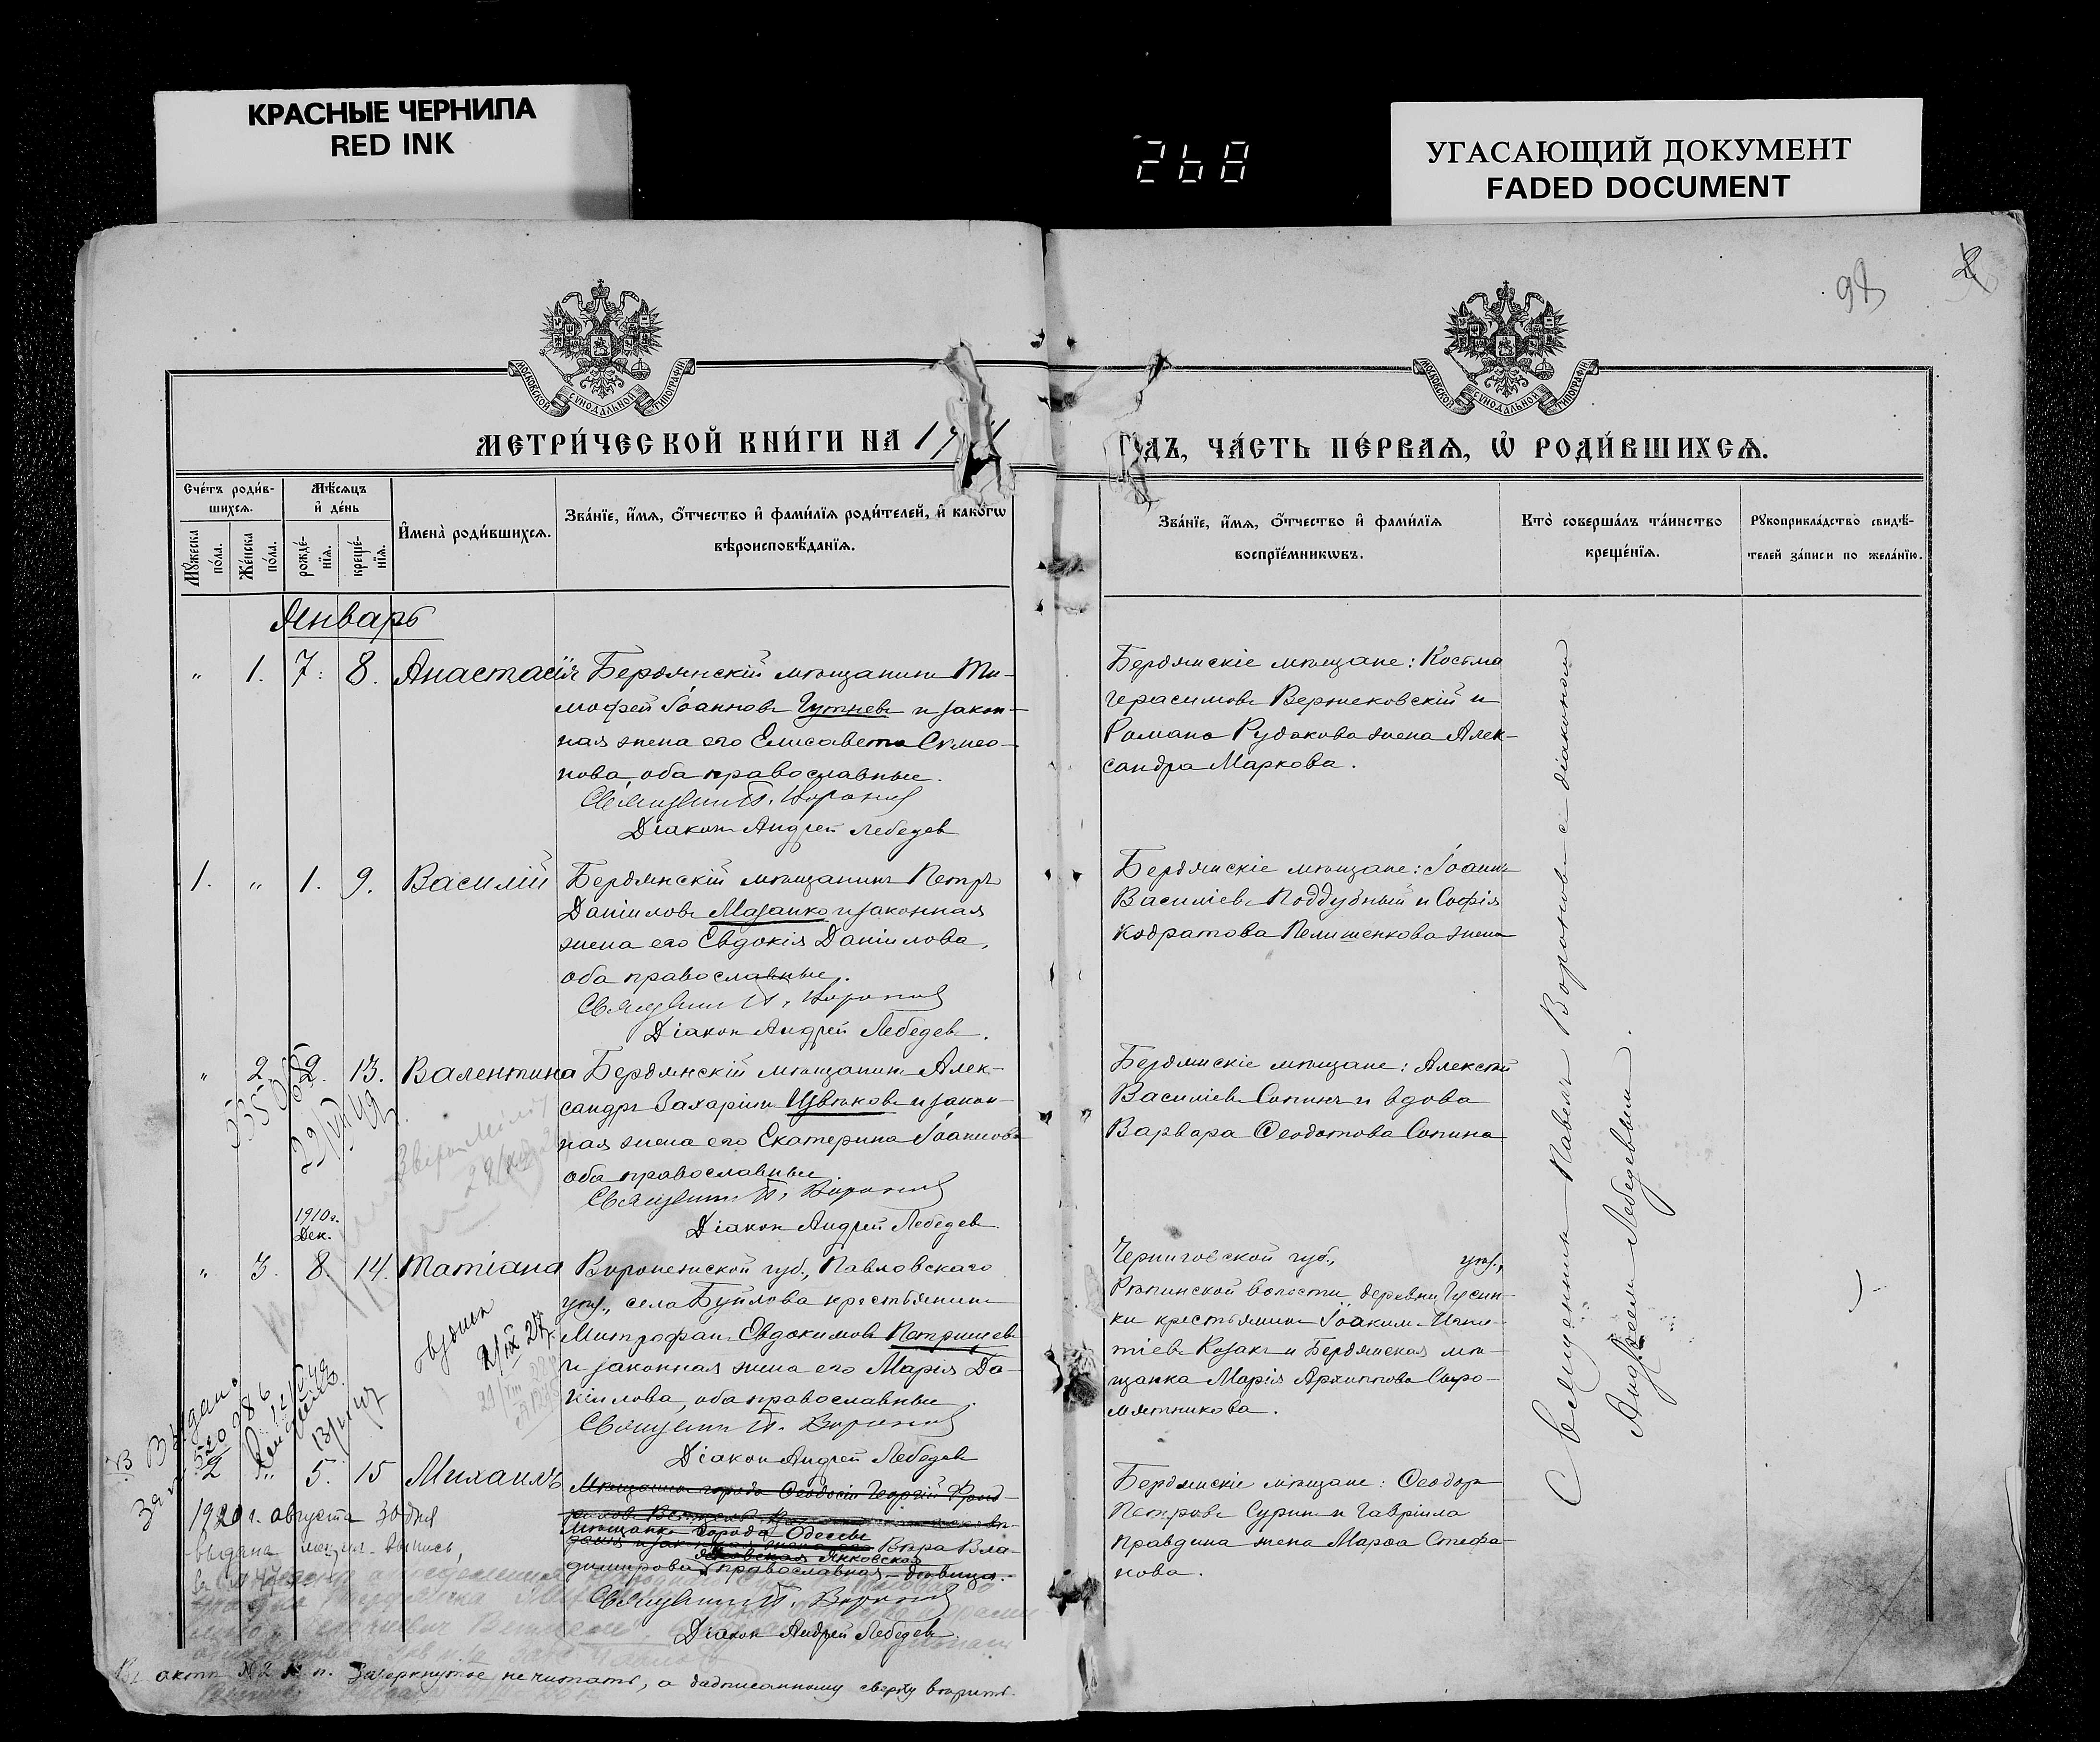 КРАСНЫЕ ЧЕРНИЛА
RED INK
268
УГАСАЮЩИЙ ДОКУМЕНТ
FADED DOCUMENT
98
МОСКОВСКОЙ СѴНОДАЛЬНОЙ ТИПОГРАФІИ
МОСКОВСКОЙ СѴНОДАЛЬНОЙ ТИПОГРАФІИ
МЕТРИ́ЧЕСКОЙ КНИ́ГИ НА 19
ГОДЪ, ЧА́СТЬ ПЕ́РВАЯ, Ѡ РОДИ́ВШИХСѦ.
Сче́тъ роди́в-
шихсѧ.
Мꙋ́жеска по́ла.
Же́нска по́ла.
Мѣ́сѧцъ
и҆ де́нь
рожде́-нїѧ.
креще́-нїѧ.
И҆мена̀ роди́вшихсѧ.
Зва́нїе, и҆́мѧ, ѻ҆́тчество и҆ фами́лїѧ роди́телей, и҆ како́гѡ
вѣроисповѣ́данїѧ.
Зва́нїе, и҆́мѧ, ѻ҆́тчество и҆ фами́лїѧ
воспрїе́мникѡвъ.
Кто̀ соверша́лъ та́инство
креще́нїѧ.
Рꙋкоприкла́дство свидѣ́-
телей за́писи по жела́нїю.
Январь
" 1. 7. 8. Анастасія
Бердянскій мѣщанинъ Ти-
мофей Іоанновъ Гутневъ и закон-
ная жена его Елисавета Симео-
нова, оба православные.
Священн. П. Воронов
Діакон Андрей Лебедев
Бердянскіе мѣщане: Косма
Герасимовъ Вержековскій и
Романа Рудакова жена Алек-
сандра Маркова.
1. " 1. 9. Василій
Бердянскій мѣщанинъ Петръ
Даніиловъ Мазанко и законная
жена его Евдокія Даніилова,
оба православные.
Священн. П. Воронов
Діакон Андрей Лебедев.
Бердянскіе мѣщане: Іоаннъ
Василіевъ Поддубный и Софія
Кодратова Пелишенкова жена
" 2. 2. 13. Валентина
Бердянскій мѣщанинъ Алек-
сандръ Захаріинъ Цвѣтковъ и закон-
ная жена его Екатерина Іоаннова
оба православные
Священн. П. Воронов
Діакон Андрей Лебедев.
Бердянскіе мѣщане: Алексѣй
Василіевъ Сопинъ и вдова
Варвара Ѳеодотова Сопина
1910 г.
Дек.
" 3. 8. 14. Татіана
Воронежской губ., Павловскаго
уѣз., села Буйлова крестьянинъ
Митрофанъ Евдокимовъ Петрищевъ
и законная жена его Марія Да-
ніилова, оба православные.
Священн. П. Воронов
Діакон Андрей Лебедев
Черниговской губ., уѣз.,
Рѣпинской волости, деревни Гусин-
ки крестьянинъ Іоакимъ Игна-
тіевъ Козакъ и Бердянская мѣ-
щанка Марія Архиппова Сыро-
мятникова.
2 " 5. 15 Михаилъ
Мѣщанинъ города Ѳеодосіи Георгій
Мѣщанка города Одессы
Вѣра Вла-
димирова Янковская
православная - дѣвица.
Священн. П. Воронов
Діакон Андрей Лебедев.
Бердянскіе мѣщане: Ѳеодор
Петровъ Суринъ и Гавріила
Правдина жена Марѳа Стефа-
нова.
Священникъ Павелъ Вороновъ с діакономъ
Андреемъ Лебедевымъ.
1920 г. августа 30 дня
выдана метрич. выпись,
Въ актѣ № 2 м. п. Зачеркнутое не читать, а надписанному сверху вѣрить.